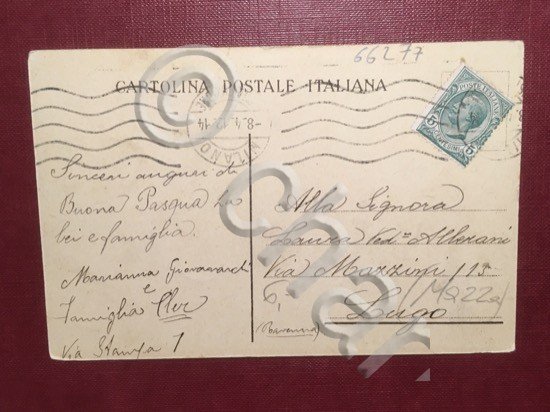 66277
CARTOLINA POSTALE ITALIANA
MILANO
-8.4.12-14
POSTE ITALIANE
5 CENTESIMI 5
Sinceri auguri di
Buona Pasqua a
lei e famiglia
Marianna
e
Famiglia
Via Stampa 7
Alla Signora
Laura Ved.a Alberani
Via Mazzini 15
(Mazza)
Lugo
(Ravenna)
© char